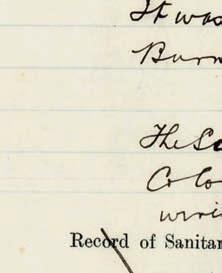 It was
Burn
The
Colo
wri
Record of Sanitar